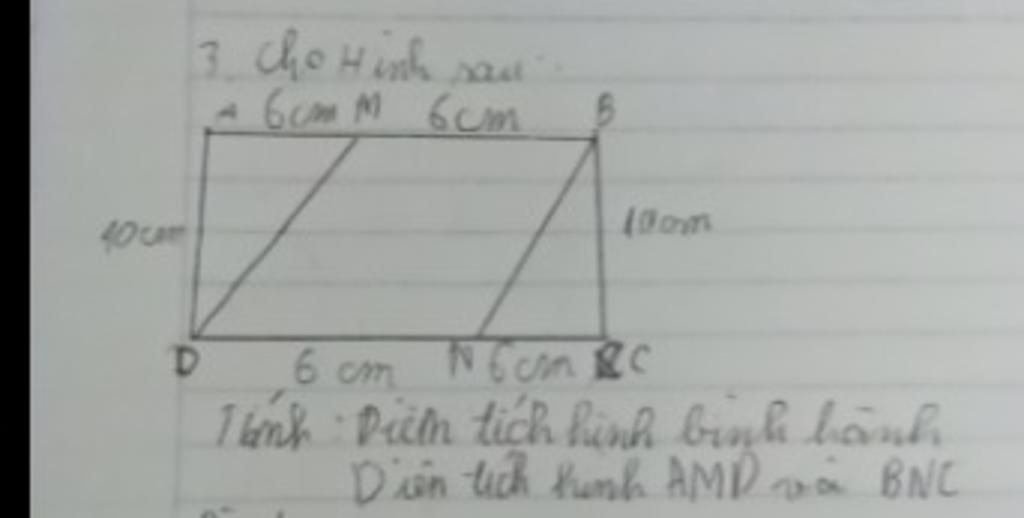 3. Cho Hình sau
A 6cm M 6cm B
10cm 10cm
D 6 cm N 6cm C
Tính: Diêm tích hình bình hành
Diên tích hình AMD và BNC